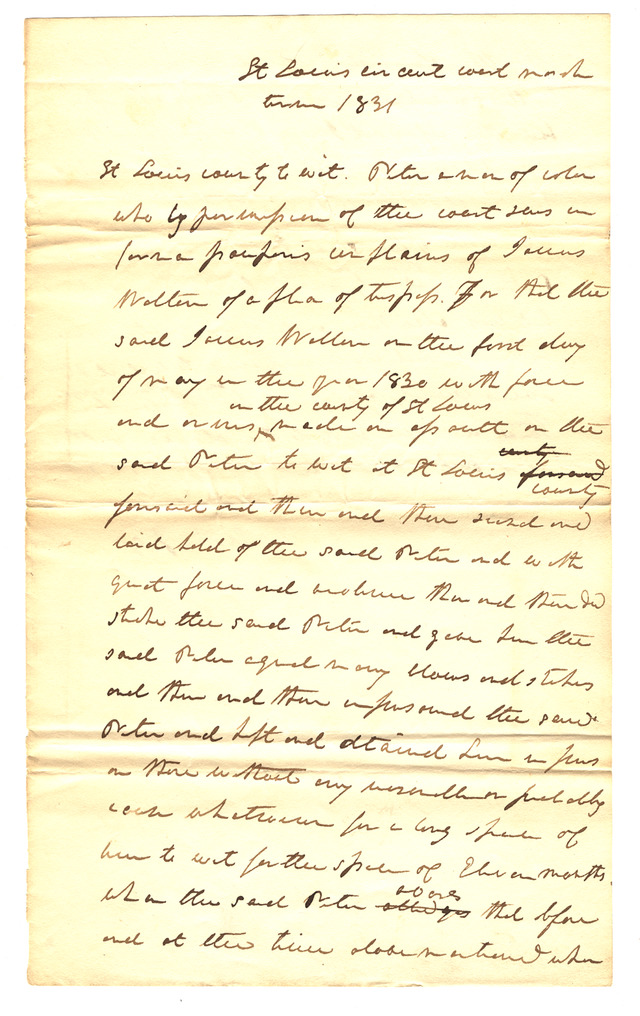 St Louis circuit court march
term 1831
St Louis county to wit. Peter a man of color
who by permission of the court sues in
forma pauperis complains of James
Walton of a plea of trespass. For that the
said James Walton on the first day
of may in the year 1830 with force
in the county of St Louis
and arms, made an assault on the
said Peter to wit at St Louis county
county
foresaid and then and there seized and
laid hold of the said Peter and with
great force and violence then and there did
strike the said Peter and gave him the
said Peter a great many blows and strokes
and then and there imprisoned the said
Peter and kept and detained him in pris
on there without any reasonable or probable
cause whatsoever for a long space of
time to wit for the space of Eleven months.
when the said Peter avers
alledges that before
and at the time above mentioned when